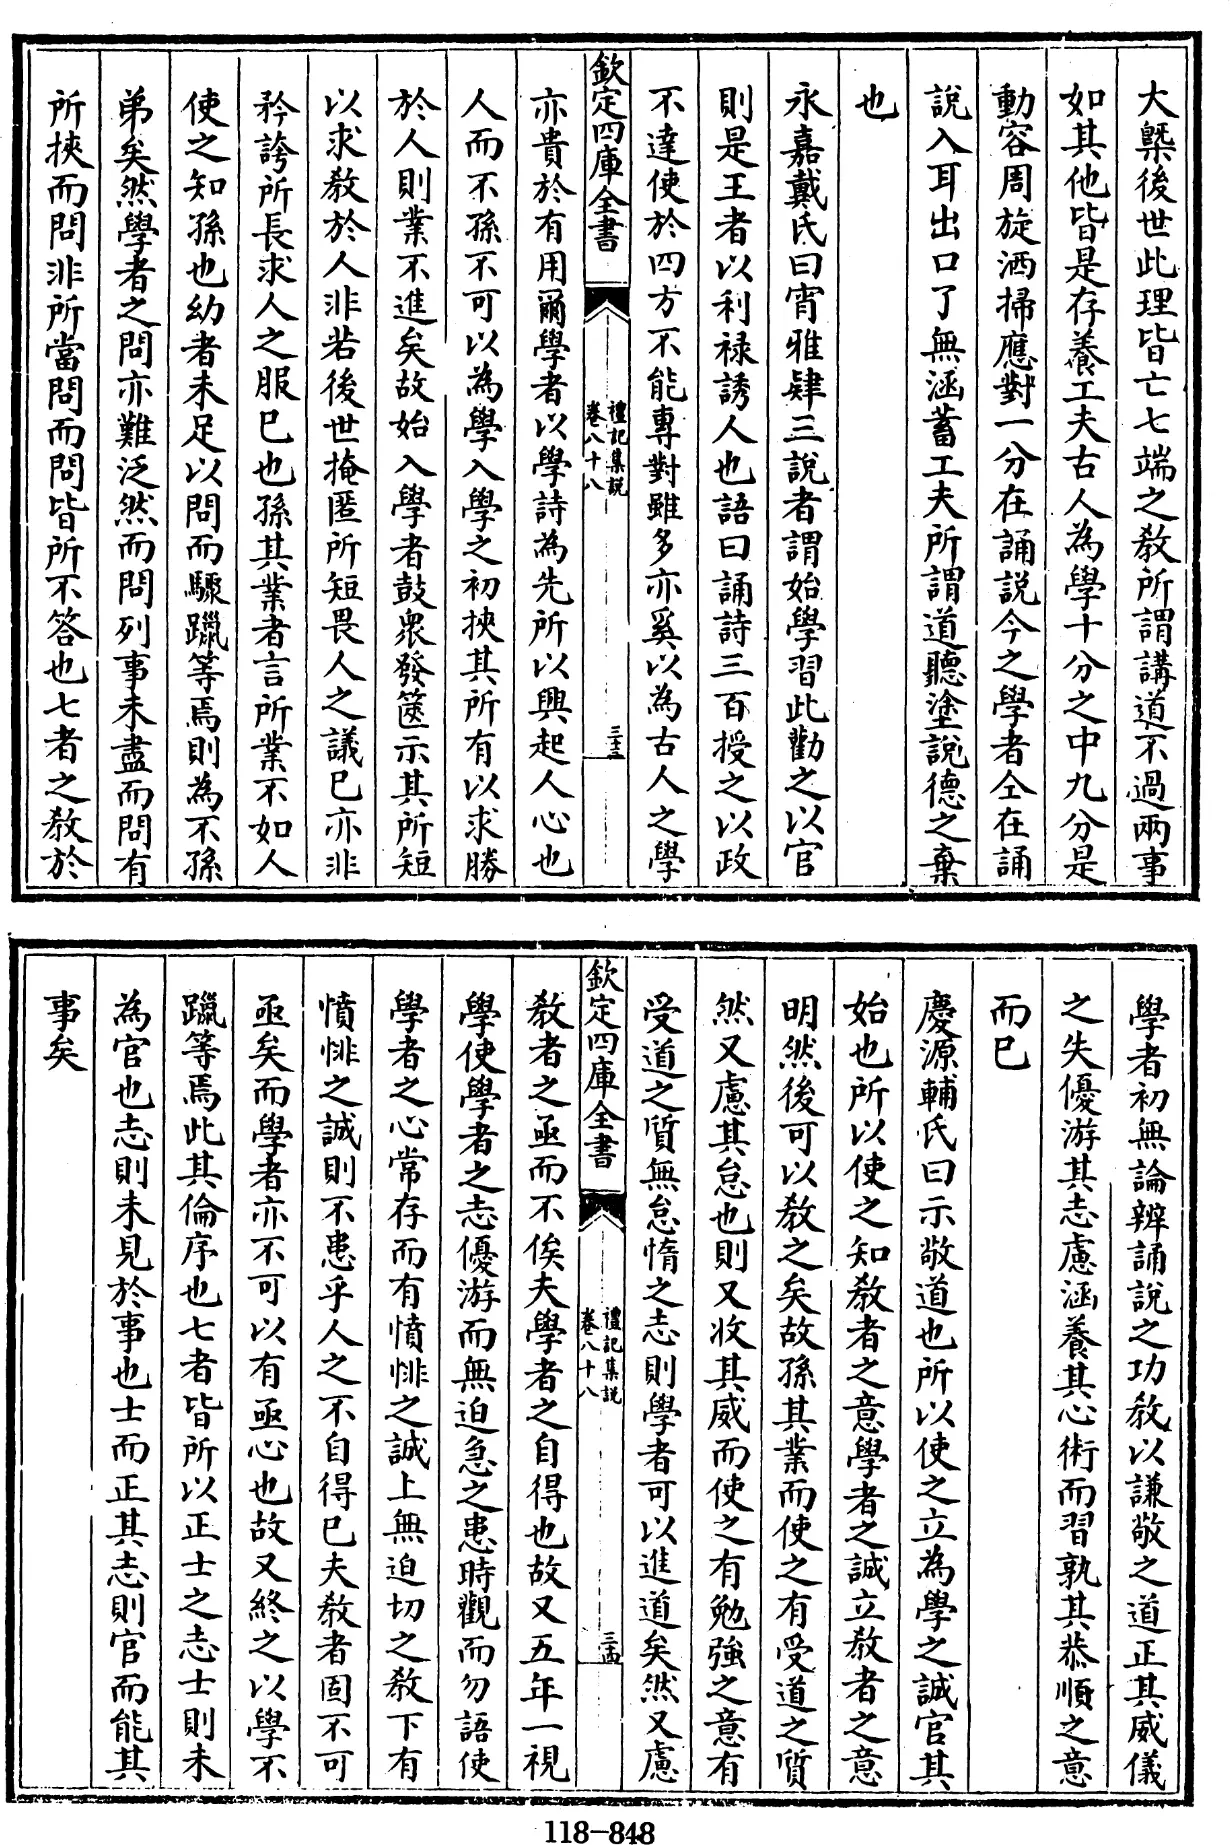 大槩後世此理皆亡七端之教所謂講道不過兩事
如其他皆是存養工夫古人為學十分之中九分是
動容周旋洒掃應對一分在誦説今之學者仝在誦
說入耳出口了無涵蓄工夫所謂道聽塗說德之棄
也
永嘉戴氏曰宵雅肄三說者謂始學習此勸之以官
則是王者以利禄誘人也語曰誦詩三百授之以政
不達使於四方不能專對雖多亦奚以為古人之學
欽定四庫全書
禮記集說
卷八十八
三十三
亦貴於有用爾學者以學詩為先所以興起人心也
人而不孫不可以為學入學之初挾其所有以求勝
於人則業不進矣故始入學者鼓衆發篋示其所短
以求教於人非若後世掩匿所短畏人之議已亦非
矜誇所長求人之服已也孫其業者言所業不如人
使之知孫也幼者未足以問而驟躐等焉則為不孫
弟矣然學者之問亦難泛然而問列事未盡而問有
所挾而問非所當問而問皆所不答也七者之教於
學者初無論辨誦說之功教以謙敬之道正其威儀
之失優游其志慮涵養其心術而習孰其恭順之意
而已
慶源輔氏曰示敬道也所以使之立為學之誠官其
始也所以使之知教者之意學者之誠立教者之意
明然後可以教之矣故孫其業而使之有受道之質
然又慮其怠也則又收其威而使之有勉強之意有
受道之質無怠惰之志則學者可以進道矣然又慮
欽定四庫全書
禮記集説
卷八十八
三十四
教者之亟而不俟夫學者之自得也故又五年一視
學使學者之志優游而無迫急之患時觀而勿語使
學者之心常存而有憤悱之誠上無迫切之教下有
憤悱之誠則不患乎人之不自得已夫教者固不可
亟矣而學者亦不可以有亟心也故又終之以學不
躐等焉此其倫序也七者皆所以正士之志士則未
為官也志則未見於事也士而正其志則官而能其
事矣
118-848